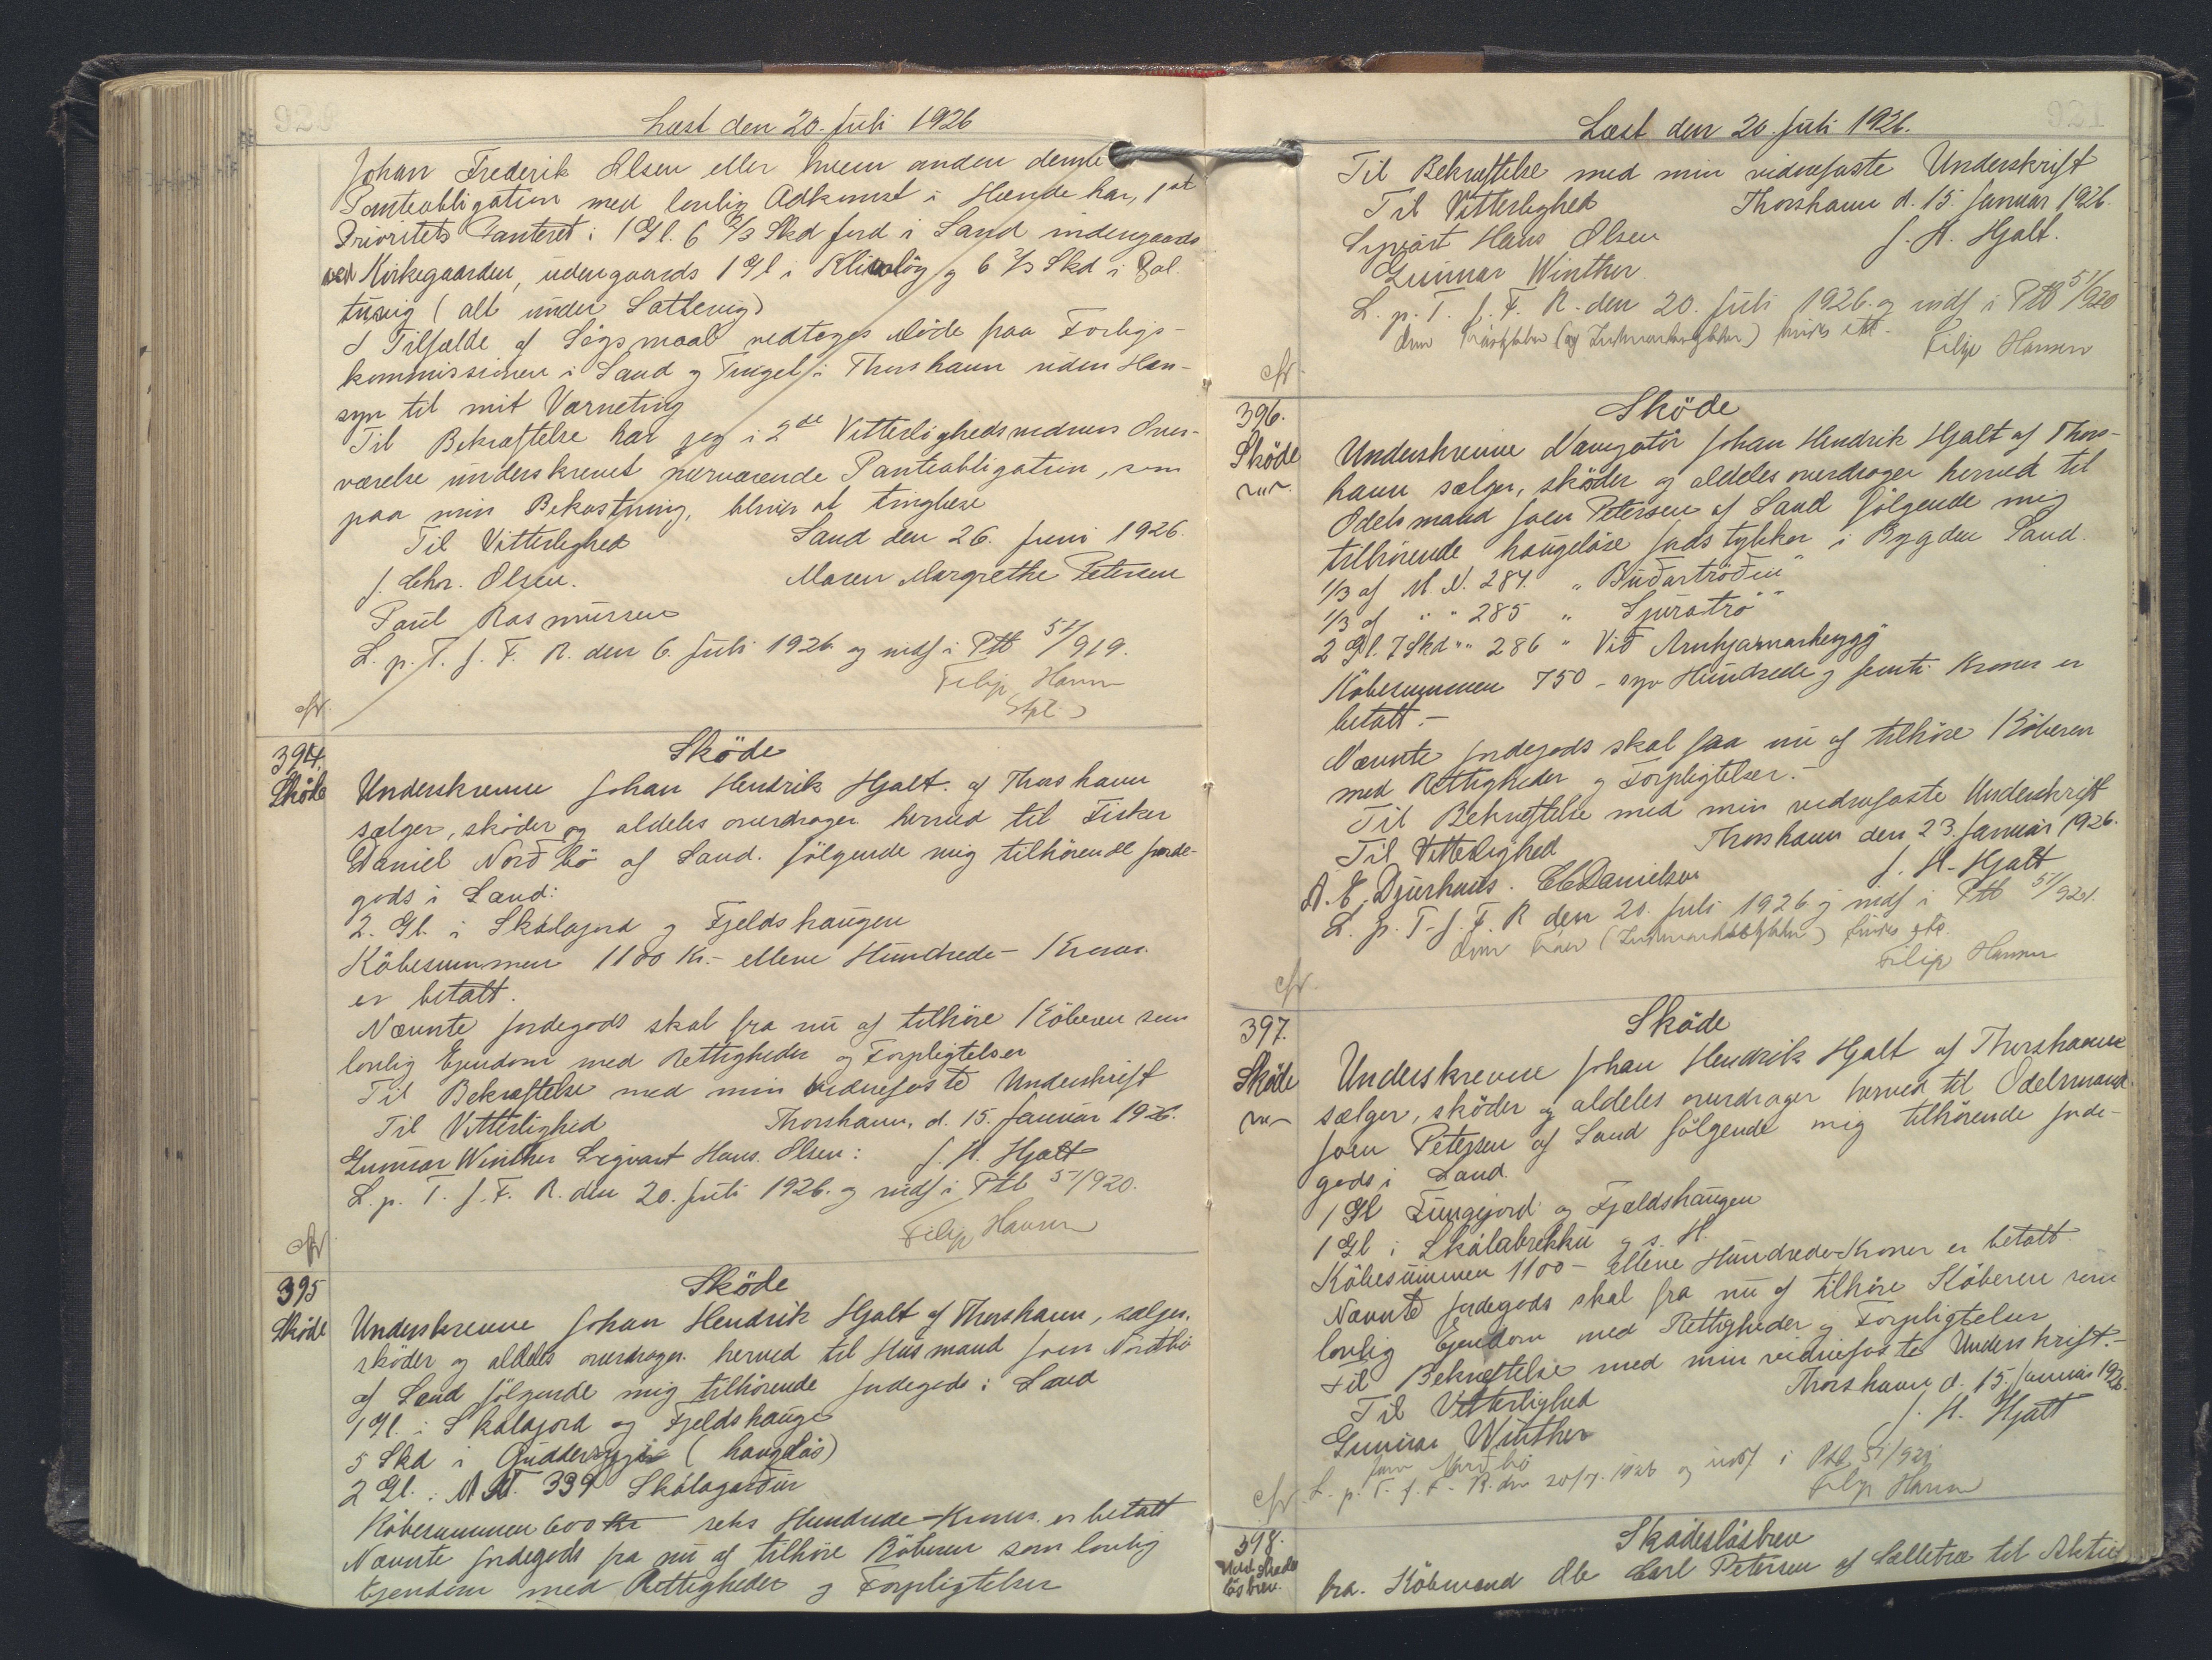 Læst den 20. Juli 1926
Johan Frederik Olsen eller hvem anden denne
Panteobligation med lovlig Adkomst i Hænde har, 1st
Prioritets Panteret i 1 Gl. 6 2/3 Skd Jord i Sand indengaards
ved Kirkegaarden, udengaards 1 Gl i og 6 2/3 Skd i
(alt under
I Tilfælde af Søgsmaal vedtages Møde paa Forligs-
kommissionen i Sand og Tinget i Thorshavn uden Hen-
syn til mit Værneting
Til Bekræftelse har jeg i 2de Vitterlighedsvidners Over-
værelse underskrevet nærværende Panteobligation, som
paa min Bekostning, bliver at tinglæse
Til Vitterlighed Sand den 26. Juni 1926.
J. Chr. Olsen. Maren Margrethe Petersen
Paul Rasmussen
L. p. T. f. F. R. den 6. Juli 1926 og indf i Ptb 51/919.
Filip Hansen
cfr.
394.
Sköde
Sköde
Underskrevne Johan Hendrik Hjalt. af Thorshavn
sælger, skøder og aldeles overdrager herved til Fisker
Daniel Norðbö af Sand. følgende mig tilhørende Jorde-
gods i Sand:
2. Gl. i Skálajord og Fjeldshaugen
Købesummen 1100 Kr.- elleve Hundrede- Kroner
er betalt.
Nævnte Jordegods skal fra nu af tilhøre Køberen som
lovlig Ejendom med Rettigheder og Forpligtelser
Til Bekræftelse med min vidnefaste Underskrift
Til Vitterlighed Thorshavn, d. 15. Januar 1926.
Gunnar Winther Sigvart Hans. Olsen: J. H. Hjalt
L. p. T. f. F. R. den 20. Juli 1926. og indf i Ptb 51/920.
Filip Hansen
cfr.
395
Sköde
Sköde
Underskrevne Johan Hendrik Hjalt af Thorshavn, sælger,
skøder og aldeles overdrager herved til Husmand Joen Nordbö
af Sand følgende mig tilhørende Jordegods i Sand
1 Gl. i Skalajord og Fjeldshauge
5 Skd i (haugeløs)
2 Gl. i M. N. 339 Skálagarður
Købesummen 600 Kr seks Hundrede Kroner er betalt
Nævnte Jordegods fra nu af tilhøre Køberen som lovlig
Ejendom med Rettigheder og Forpligtelser
Læst den 20. Juli 1926.
Til Bekræftelse med min vidnefaste Underskrift
Til Vitterlighed Thorshavn d. 15. Januar 1926.
Sigvart Hans Olsen J. H. Hjalt.
Gunnar Winther
L. p. T. f. F. R. den 20. Juli 1926. og indf i Ptb 51/920
Filip Hansen
cfr.
396.
Sköde
Sköde
Underskrevne Navigatør Johan Hendrik Hjalt af Thors-
havn sælger, skøder og aldeles overdrager herved til
Odelsmand Joen Petersen af Sand følgende mig
tilhørende haugeløse Jordstykker i Bygden Sand.
1/3 af M. N. 284. "Buðartröðin"
1/3 af " " 285 "
2 Gl. 7 Skd " " 286 " Við
Købesummen 750 - syv Hundrede og femti Kroner er
betalt.-
Nævnte Jordegods skal fra nu af tilhøre Køberen
med Rettigheder og Forpligtelser.-
Til Bekræftelse med min vidnefaste Underskrift
Til Vitterlighed Thorshavn den 23. Januar 1926.
A. E. Djurhuus. C Danielsen J. H. Hjalt
L. p. T. f. F. R den 20. Juli 1926 og indf i Ptb 51/921.
Filip Hansen
cfr.
397.
Sköde
Sköde
Underskrevne Johan Hendrik Hjalt af Thorshavn
sælger, skøder og aldeles overdrager herved til Odelsmand
Joen Petersen af Sand følgende mig tilhørende Jorde-
gods i Sand.
1 Gl og Fjeldshaugen
1 Gl i Skálabrekku og s. H.
Købesummen 1100 - elleve Hundrede Kroner er betalt
Nævnte Jordegods skal fra nu af tilhøre Køberen som
lovlig Ejendom med Rettigheder og Forpligtelser
Til Bekræftelse med min vidnefaste Underskrift.-
Til Vitterlighed Thorshavn d. 15. Januar 1926.
Gunnar Winther J. H. Hjalt
Joen Norðbö
cfr. L. p. T. f. F. R. den 20/7. 1926 og indf i Ptb 51/921
Filip Hansen
398.
Skadesløsbrev
fra Købmand Ole Carl Petersen af til Aktie